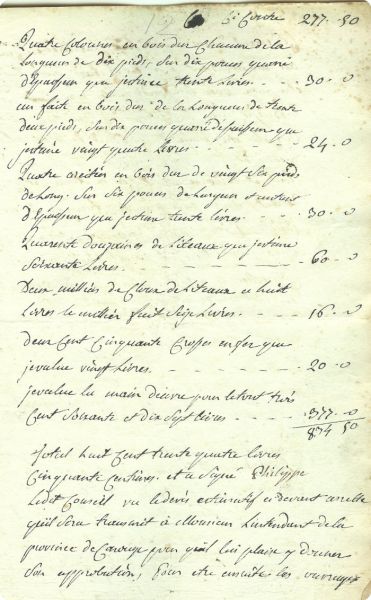 Cy Contre 277-50
Quatre Colonnes en bois dur Chacune de la
longueur de dix pieds, sur dix pouces quarré
d'Epaisseur que j'estime trente livres - 30-0
un faite en bois dur de la Longueur de trente
deux pieds, sur dix pouces quarré d'epaisseur que
j'estime vingt quatre Livres - 24-0
Quatre arétiers en bois dur de vingt six pieds
de Long. sur six pouces de Largeur et autant
d'Epaisseur que j'estime trente livres - 30-0
Quarente douzaines de Liteaux que j'estime
Soixante Livres - 60-0
Deux milliers de Cloux de Liteaux a huit
Livres le millier fait Seize Livres - 16-0
deux Cent Cinquante Crosses en fer que
jevalue vingt Livres - 20-0
jevalue la main d'œuvre pour le tout trois
Cent Soixante et dix Sept livres - 377-0
834 50
Total huit Cent trente quatre livres
Cinquante Centimes. et a Signé Philippe
Ledit Conseil vu le devis estimatif cy devant arrette
qu'il sera transmit à Monsieur L'intendant de la
province de Carouge pour qu'il lui plaise y donner
Son approbation, pour être ensuite les ouvrages